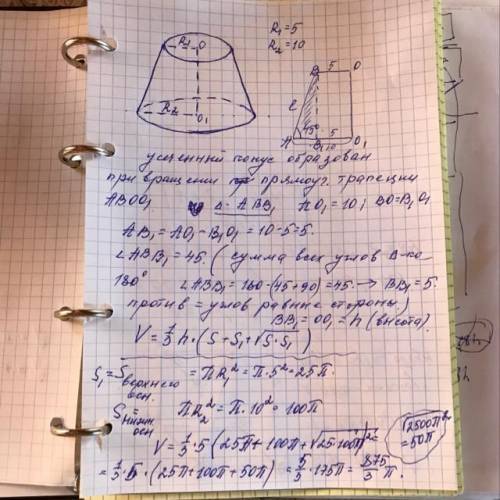 R₁=5
R₂=10
R₁ O
R₂ O₁
B 5 O
l
45° 5
A B₁ 10 O₁
усеченный конус образован
при вращении прямоуг. трапеции
ABOO₁ Δ- ABB₁ AO₁=10; BO=B₁O₁
AB₁=AO₁-B₁O₁=10-5=5.
∠ABB₁=45. (сумма всех углов Δ-ка
180° ∠ABB₁=180-(45+90)=45. → BB₁=5.
против = углов равные стороны)
BB₁=OO₁=h (высота).
V=1/3 h·(S+S₁+√S·S₁)
S₁=S верхнего осн. =πR₁²=π·5²=25π.
S нижн осн = πR₂²=π·10²=100π
V=1/3·5(25π+100π+√25·100π²)=
√2500π²
=50π
=1/3·5·(25π+100π+50π)=5/3·175π=875/3 π.